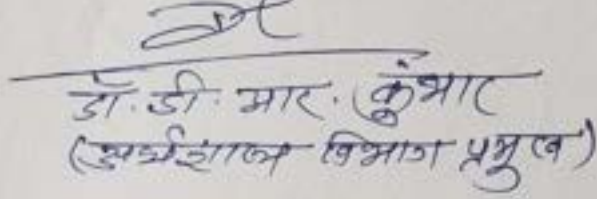 डॉ. डी. आर. कुंभार
(अर्थशास्त्र विभाग प्रमुख)